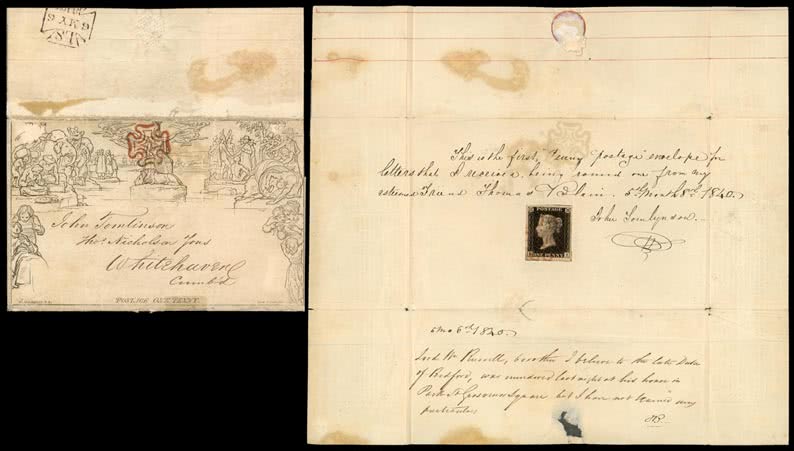 9 MY 9
John Tomlinson
Thos Nicholson Yons
Whitehaven
Cumb'd
POSTAGE ONE PENNY.
This is the first, "Penny postage" envelope for
letters that I receive, being round one from my
esteemed Friend Thomas 5th Month 8th 1840.
John Tomlynson.
POSTAGE
ONE PENNY
5 mo 6th 1840.
Lord Wm Russell, brother I believe to the late Duke
of Bedford, was murdered last night at his house in
Park St Grosvenor Square but I have not learned any
particulars